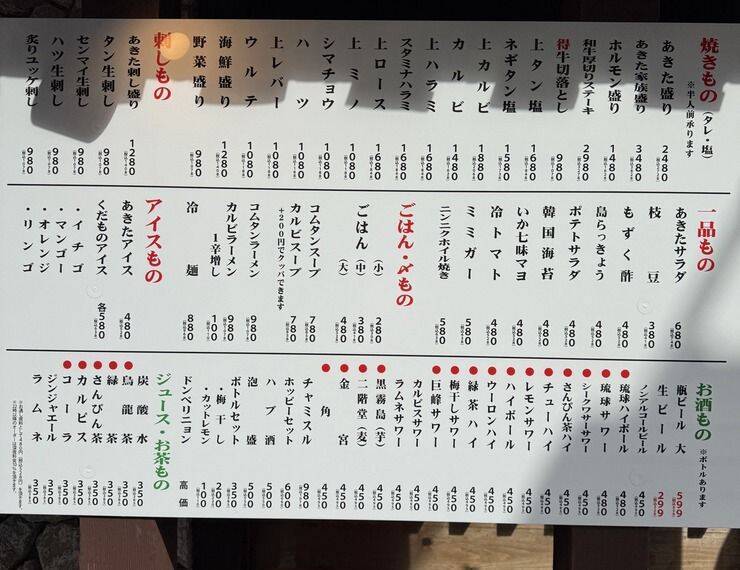 焼きもの（タレ・塩）
※半人前承ります
あきた盛り 2480
あきた家族盛り 3480
ホルモン盛り 1480
和牛厚切りステーキ 2980
得牛切落とし 980
上タン塩 1680
ネギタン塩 1580
上カルビ 1880
カルビ 1480
上ハラミ 1680
スタミナハラミ 1680
上ロース 1680
上ミノ 1080
シマチョウ 1080
ハツ 1080
上レバー 1080
ウルテ 1080
海鮮盛り 1280
野菜盛り 980
刺しもの
あきた刺し盛り 1280
タン生刺し 980
センマイ生刺し 980
ハツ生刺し 980
炙りユッケ刺し 980
一品もの
あきたサラダ 680
枝豆 380
もずく酢 480
島らっきょう 480
ポテトサラダ 480
韓国海苔 480
いか七味マヨ 480
冷トマト 480
ミミガー 580
ニンニクホイル焼き 580
ごはん・〆もの
ごはん（小） 280
（中） 380
（大） 480
コムタンスープ 780
カルビスープ 780
+200円でクッパできます
コムタンラーメン 980
カルビラーメン 980
1辛増し 100
冷麺 880
アイスもの
あきたアイス 480
くだものアイス 各580
・イチゴ
・マンゴー
・オレンジ
・リンゴ
お酒もの ※ボトルあります
瓶ビール 大 599
生ビール 299
ノンアルコールビール 450
琉球ハイボール 480
琉球サワー 480
シークワサーサワー 450
さんぴん茶ハイ 450
チューハイ 450
レモンサワー 450
ハイボール 450
ウーロンハイ 450
緑茶ハイ 450
梅干しサワー 450
巨峰サワー 450
カルピスサワー 450
ラムネサワー 450
黒霧島（芋） 450
二階堂（麦） 450
金宮 450
角 450
チャミスル 980
ホッピーセット 600
ハブ酒 500
泡盛 500
ボトルセット 350
・梅干し 200
・カットレモン 100
ドンペリニョン 高価
ジュース・お茶もの
炭酸水 350
烏龍茶 350
緑茶 350
さんぴん茶 350
カルピス 350
コーラ 350
ジンジャエール 350
ラムネ 350